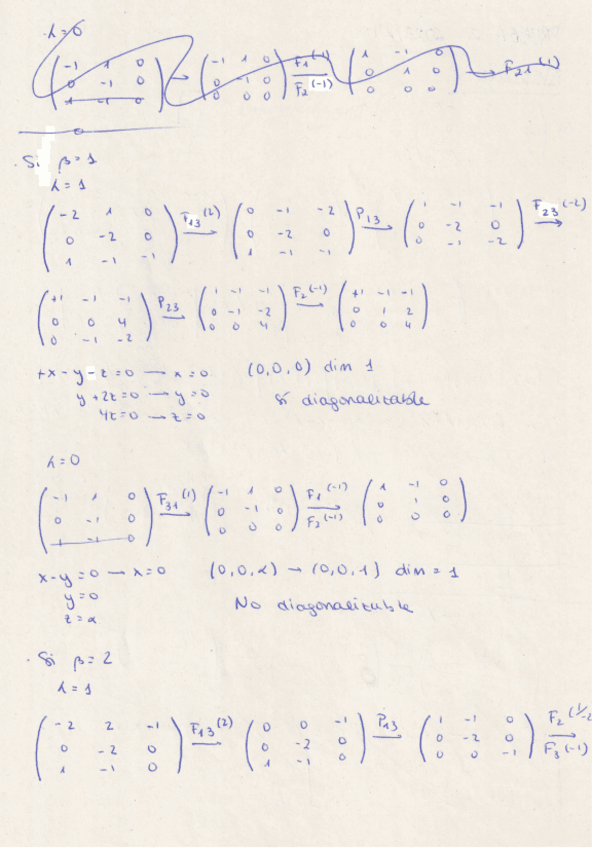 λ=0
( -1 1 0 ; 0 -1 0 ; 1 -1 0 ) → ( -1 1 0 ; 0 -1 0 ; 0 0 0 ) F1(-1) F2(-1) → ( 1 -1 0 ; 0 1 0 ; 0 0 0 ) → F21(1)
· Si β=1
λ=1
( -2 1 0 ; 0 -2 0 ; 1 -1 -1 ) F13(2) → ( 0 -1 -2 ; 0 -2 0 ; 1 -1 -1 ) P13 → ( 1 -1 -1 ; 0 -2 0 ; 0 -1 -2 ) F23(-2) →
( +1 -1 -1 ; 0 0 4 ; 0 -1 -2 ) P23 → ( 1 -1 -1 ; 0 -1 -2 ; 0 0 4 ) F2(-1) → ( +1 -1 -1 ; 0 1 2 ; 0 0 4 )
+x-y-z=0 → x=0 (0,0,0) dim 1
y+2z=0 → y=0 Sí diagonalitzable
4z=0 → z=0
λ=0
( -1 1 0 ; 0 -1 0 ; 1 -1 0 ) F31(1) → ( -1 1 0 ; 0 -1 0 ; 0 0 0 ) F1(-1) F2(-1) → ( 1 -1 0 ; 0 1 0 ; 0 0 0 )
x-y=0 → x=0 (0,0,α) → (0,0,1) dim = 1
y=0 No diagonalitzable
z=α
· Si β=2
λ=1
( -2 2 -1 ; 0 -2 0 ; 1 -1 0 ) F13(2) → ( 0 0 -1 ; 0 -2 0 ; 1 -1 0 ) P13 → ( 1 -1 0 ; 0 -2 0 ; 0 0 -1 ) F2(1/-2 F3(-1) →